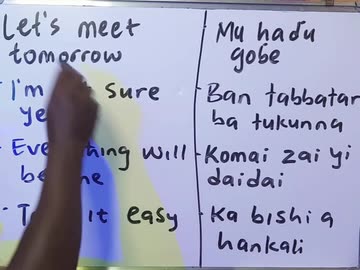 Let's meet
tomorrow
I'm sure
Ev will
be
it easy
Mu hadu
gobe
Ban tabbatar
ba tukunna
Komai zai yi
daidai
Ka bishi a
hankali